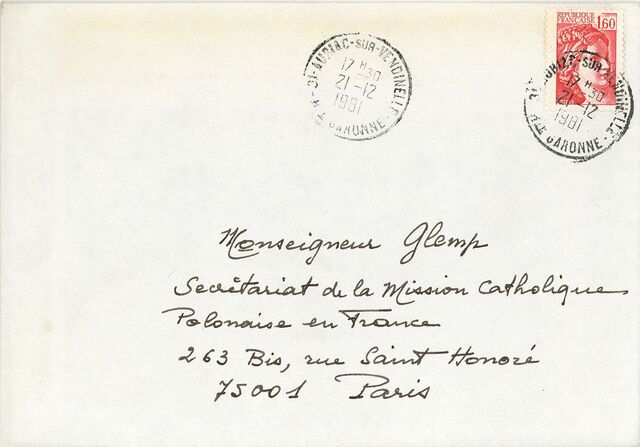 REPUBLIQUE
FRANÇAISE
1,60
31-AURIAC-SUR-VENDINELLE
17 H 30
21-12
1981
HTE GARONNE
31-AURIAC-SUR-VENDINELLE
17 H 30
21-12
1981
HTE GARONNE
Monseigneur Glemp
Secrétariat de la Mission Catholique
Polonaise en France
263 Bis, rue Saint Honoré
75001 Paris